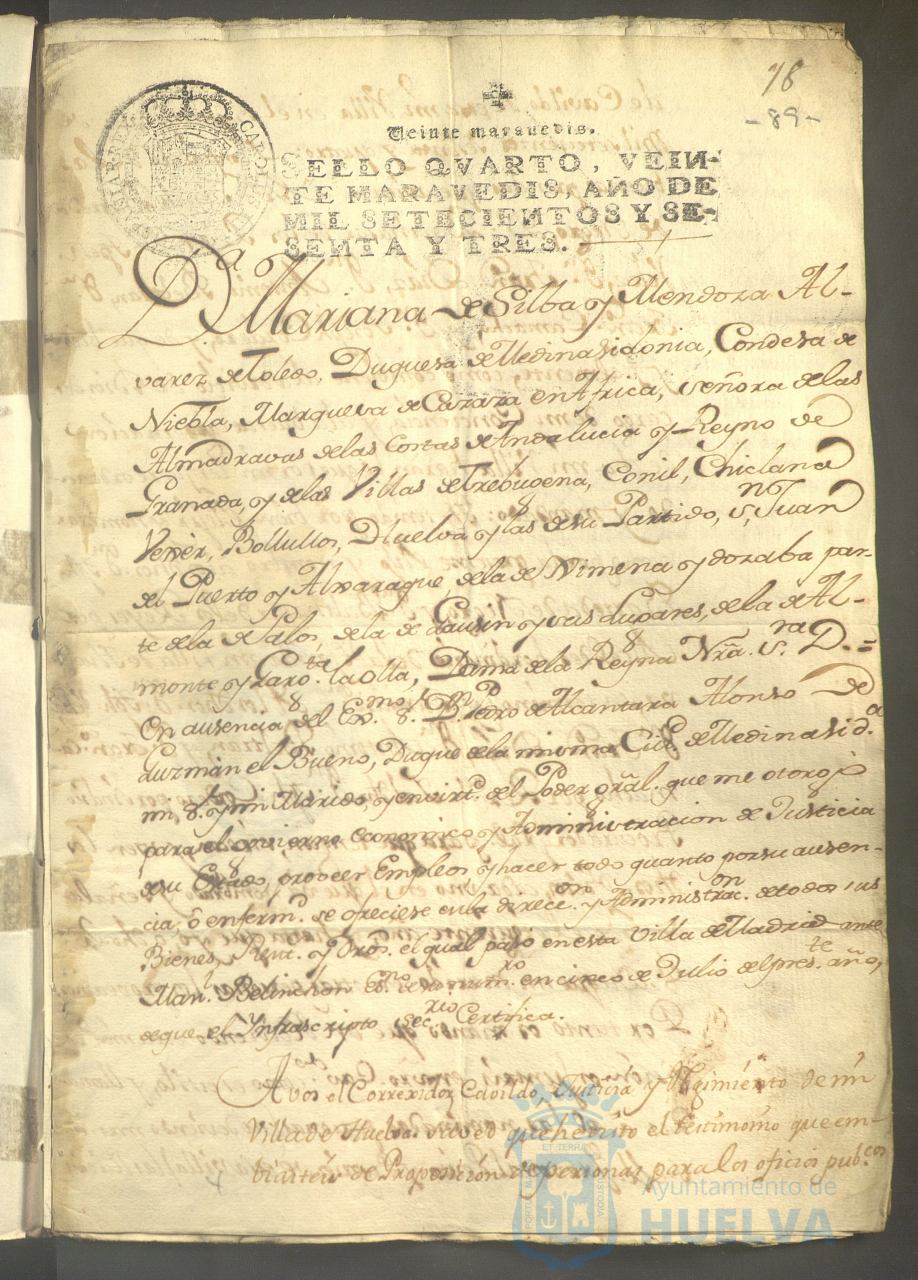 78
-89-
Veinte maravedis.
SELLO QVARTO, VEIN-
TE MARAVEDIS, AÑO DE
MIL SETECIENTOS Y SE-
SENTA Y TRES.
D.ª Mariana de Silba y Mendoza Al-
varez de Toledo, Duquesa de Medina Sidonia, Condesa de
Niebla, Marquesa de Cazaza en Africa, Señora de las
Almadravas de las Costas de Andalucia y Reyno de
Granada, y de las Villas de Trebugena, Conil, Chiclana
Vexèr, Bollullos, Dhuelva y las de su Partido, S.n Juan
del Puerto y Alxaraque, de la de Ximena y dozaba par-
te de la de Palos, de la de Gausin y sus Lugares, de la de Al-
monte y la olla, Dama de la Reyna Nrã. S.ra D.=
En ausencia del Ex.mo S.r D. Pedro de Alcantara Alonso de
Guzmàn el Bueno, Duque de la misma Ciud. de Medina Sid.ª
mi S.r y mi Marido, y en virt.d del Poder grãl. que me otorgò
para el govierno economico y Administracion de Justicia
de su Estado, proveer Empleos y hacer todo quanto por su ausen-
cia, ò enferm.d se ofreciese en la direcc.on y Administrac.on de todos sus
Bienes, Rent.s y Dros. el qual pasò en esta Villa de Madrid ante
Man.l Belinchon Es.no de su num.ro en cinco de Julio del pres.te año,
de que el Infrascripto Sec.rio Certifica.
A vos el Correxidor, Cavildo, Justicia y Regimiento de mi
Villa de Huelva. Saved que he visto el testimonio que em-
biasteis de Proposicion de personas para los oficios pub.cos
CAROL
HISPANIAR. REX
PORTUS MARIS
ET TERRAE
CUSTODIA
Ayuntamiento de
HUELVA